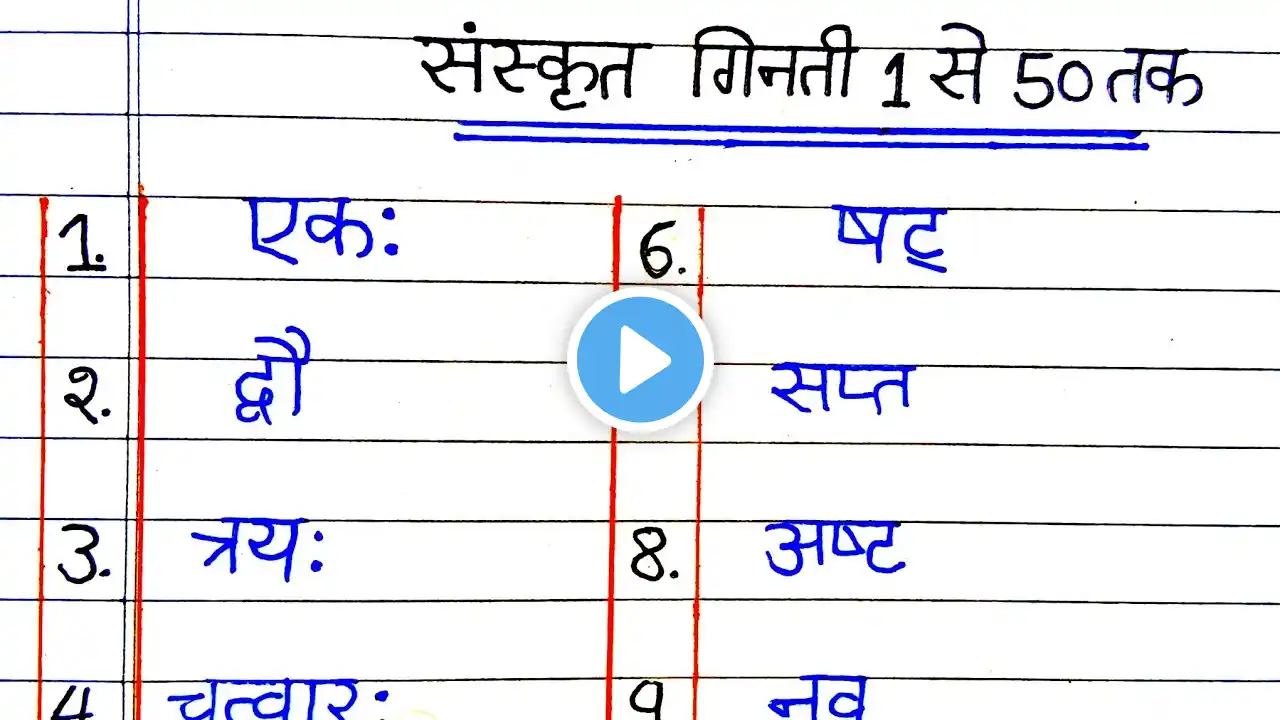 संस्कृत गिनती 1 से 50 तक
1. एक: 6. षट्
२. द्वौ सप्त
3. त्रय: 8. अष्ट
4 चत्वार: 9 नव